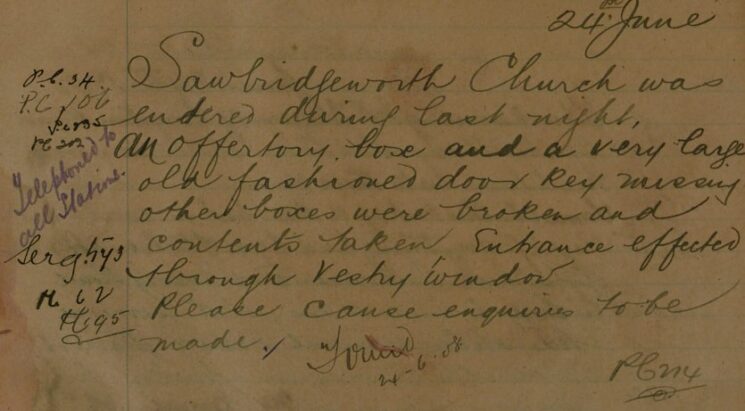 24th June
P.C. 34
P.C. 106
P.C. 195
PC 202
Telephoned to
all Stations.
Serg
H 62
H. 95
Sawbridgeworth Church was
entered during last night,
an offertory box and a very large
old fashioned door key missing
other boxes were broken and
contents taken, Entrance effected
through Vestry window
Please cause enquiries to be
made.
24-6-08
PC 214